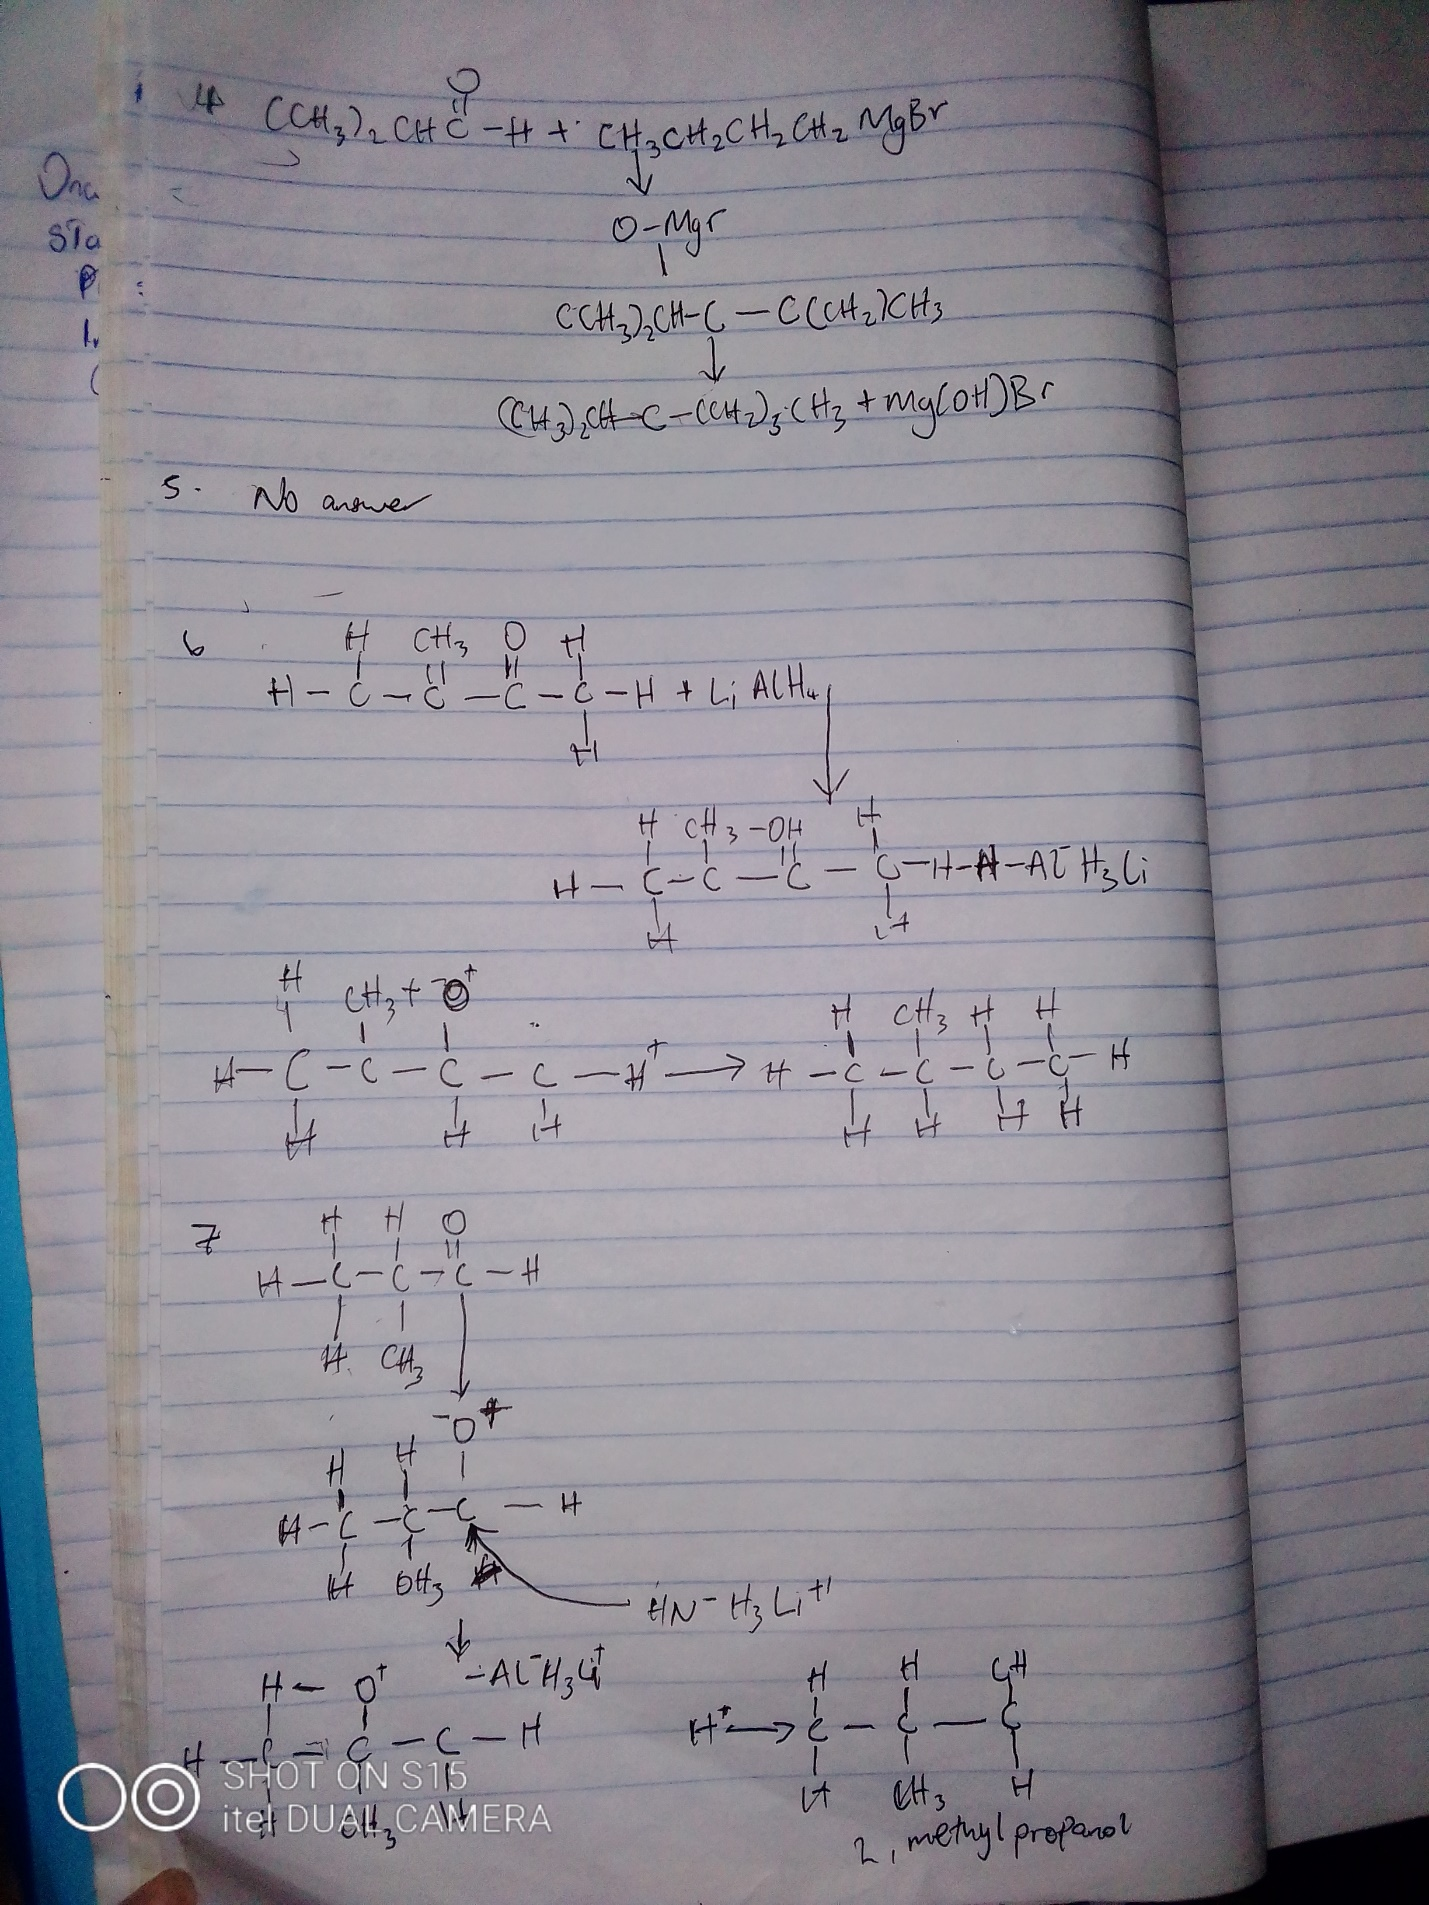 4 (CH3)2 CH C -H + CH3CH2CH2CH2 MgBr
O
Ona
sta
P
1.
O-Mgr
(CH3)2CH-C - C(CH2)CH3
(CH3)2CH-C-(CH2)3 CH3 + Mg(OH)Br
5. No answer
6
H CH3 O H
H - C - C - C - C - H + Li AlH4
H
H CH3 -OH H
H - C - C - C - C - H-H-Al- H3Li
H H
H CH3+ -O+
H CH3 H H
H - C - C - C - C - H+ → H - C - C - C - C - H
H H H
H H H H
7
H H O
H - C - C - C - H
H. CH3
-O+
H H
H - C - C - C - H
H OH3 H
HN- H3Li+
-Al-H3Li+
H- O+
H - C - C - C - H
H OH3 H
H H OH
H+ → C - C - C
H CH3 H
2, methyl propanol
SHOT ON S15
itel DUAL CAMERA